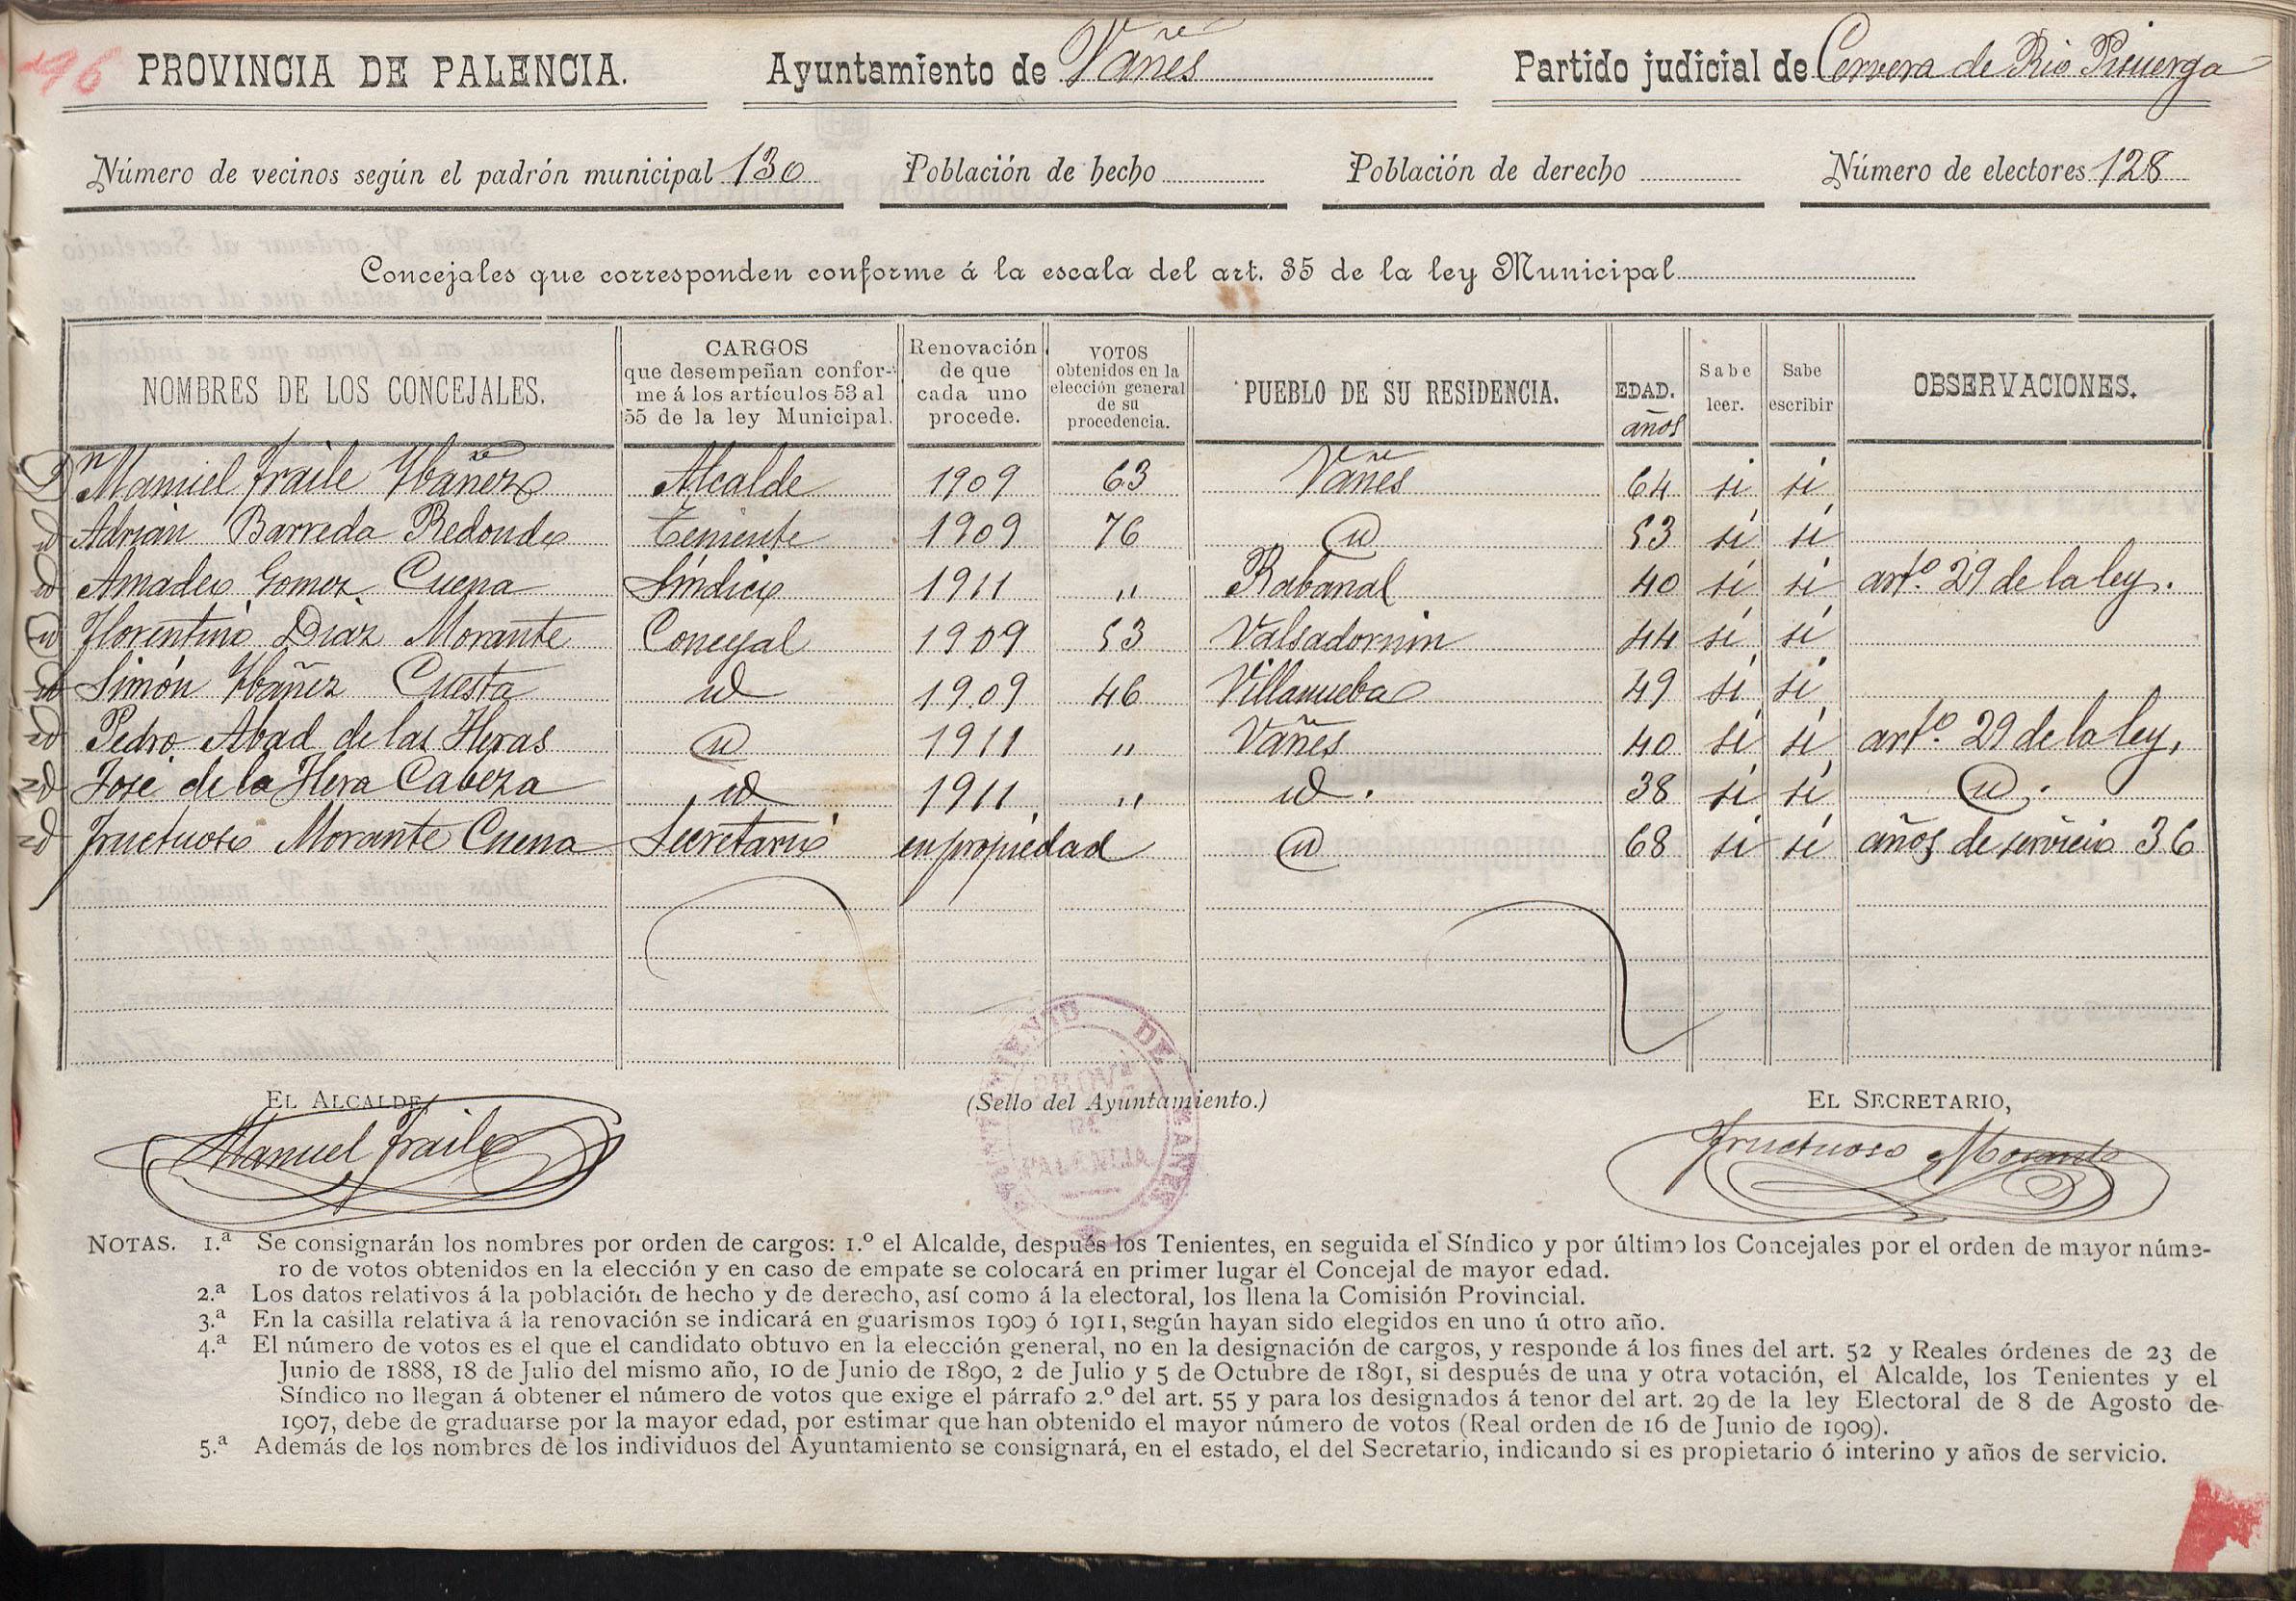 196 PROVINCIA DE PALENCIA. Ayuntamiento de Vañes Partido judicial de Cervera de Rio Pisuerga
Número de vecinos según el padrón municipal 130 Población de hecho Población de derecho Número de electores 128
Concejales que corresponden conforme á la escala del art. 35 de la ley Municipal
NOMBRES DE LOS CONCEJALES. CARGOS que desempeñan confor-me á los artículos 53 al 55 de la ley Municipal. Renovación de que cada uno procede. VOTOS obtenidos en la elección general de su procedencia. PUEBLO DE SU RESIDENCIA. EDAD. años Sabe leer. Sabe escribir OBSERVACIONES.
Dn Manuel Fraile Ybañez Alcalde 1909 63 Vañes 64 si si
id Adrian Barreda Redondo Teniente 1909 76 id 53 si si
id Amadeo Gomez Cuena Síndico 1911 " Rabanal 40 si si arto. 29 de la ley.
id Florentino Diaz Morante Concejal 1909 53 Valsadornin 44 si si
id Simón Ybañez Cuesta id 1909 46 Villanueba 49 si si
id Pedro Abad de las Heras id 1911 " Vañes 40 si si arto. 29 de la ley,
id José de la Hera Cabeza id 1911 " id. 38 si si id.
id Fructuoso Morante Cuena Secretario en propiedad id 68 si si años de servicio 36
EL ALCALDE (Sello del Ayuntamiento.) EL SECRETARIO,
Manuel Fraile Fructuoso Morante
PROVA DE PALENCIA
NOTAS. 1.ª Se consignarán los nombres por orden de cargos: 1.º el Alcalde, después los Tenientes, en seguida el Síndico y por último los Concejales por el orden de mayor núme-
ro de votos obtenidos en la elección y en caso de empate se colocará en primer lugar el Concejal de mayor edad.
2.ª Los datos relativos á la población de hecho y de derecho, así como á la electoral, los llena la Comisión Provincial.
3.ª En la casilla relativa á la renovación se indicará en guarismos 1909 ó 1911, según hayan sido elegidos en uno ú otro año.
4.ª El número de votos es el que el candidato obtuvo en la elección general, no en la designación de cargos, y responde á los fines del art. 52 y Reales órdenes de 23 de
Junio de 1888, 18 de Julio del mismo año, 10 de Junio de 1890, 2 de Julio y 5 de Octubre de 1891, si después de una y otra votación, el Alcalde, los Tenientes y el
Síndico no llegan á obtener el número de votos que exige el párrafo 2.º del art. 55 y para los designados á tenor del art. 29 de la ley Electoral de 8 de Agosto de
1907, debe de graduarse por la mayor edad, por estimar que han obtenido el mayor número de votos (Real orden de 16 de Junio de 1909).
5.ª Además de los nombres de los individuos del Ayuntamiento se consignará, en el estado, el del Secretario, indicando si es propietario ó interino y años de servicio.